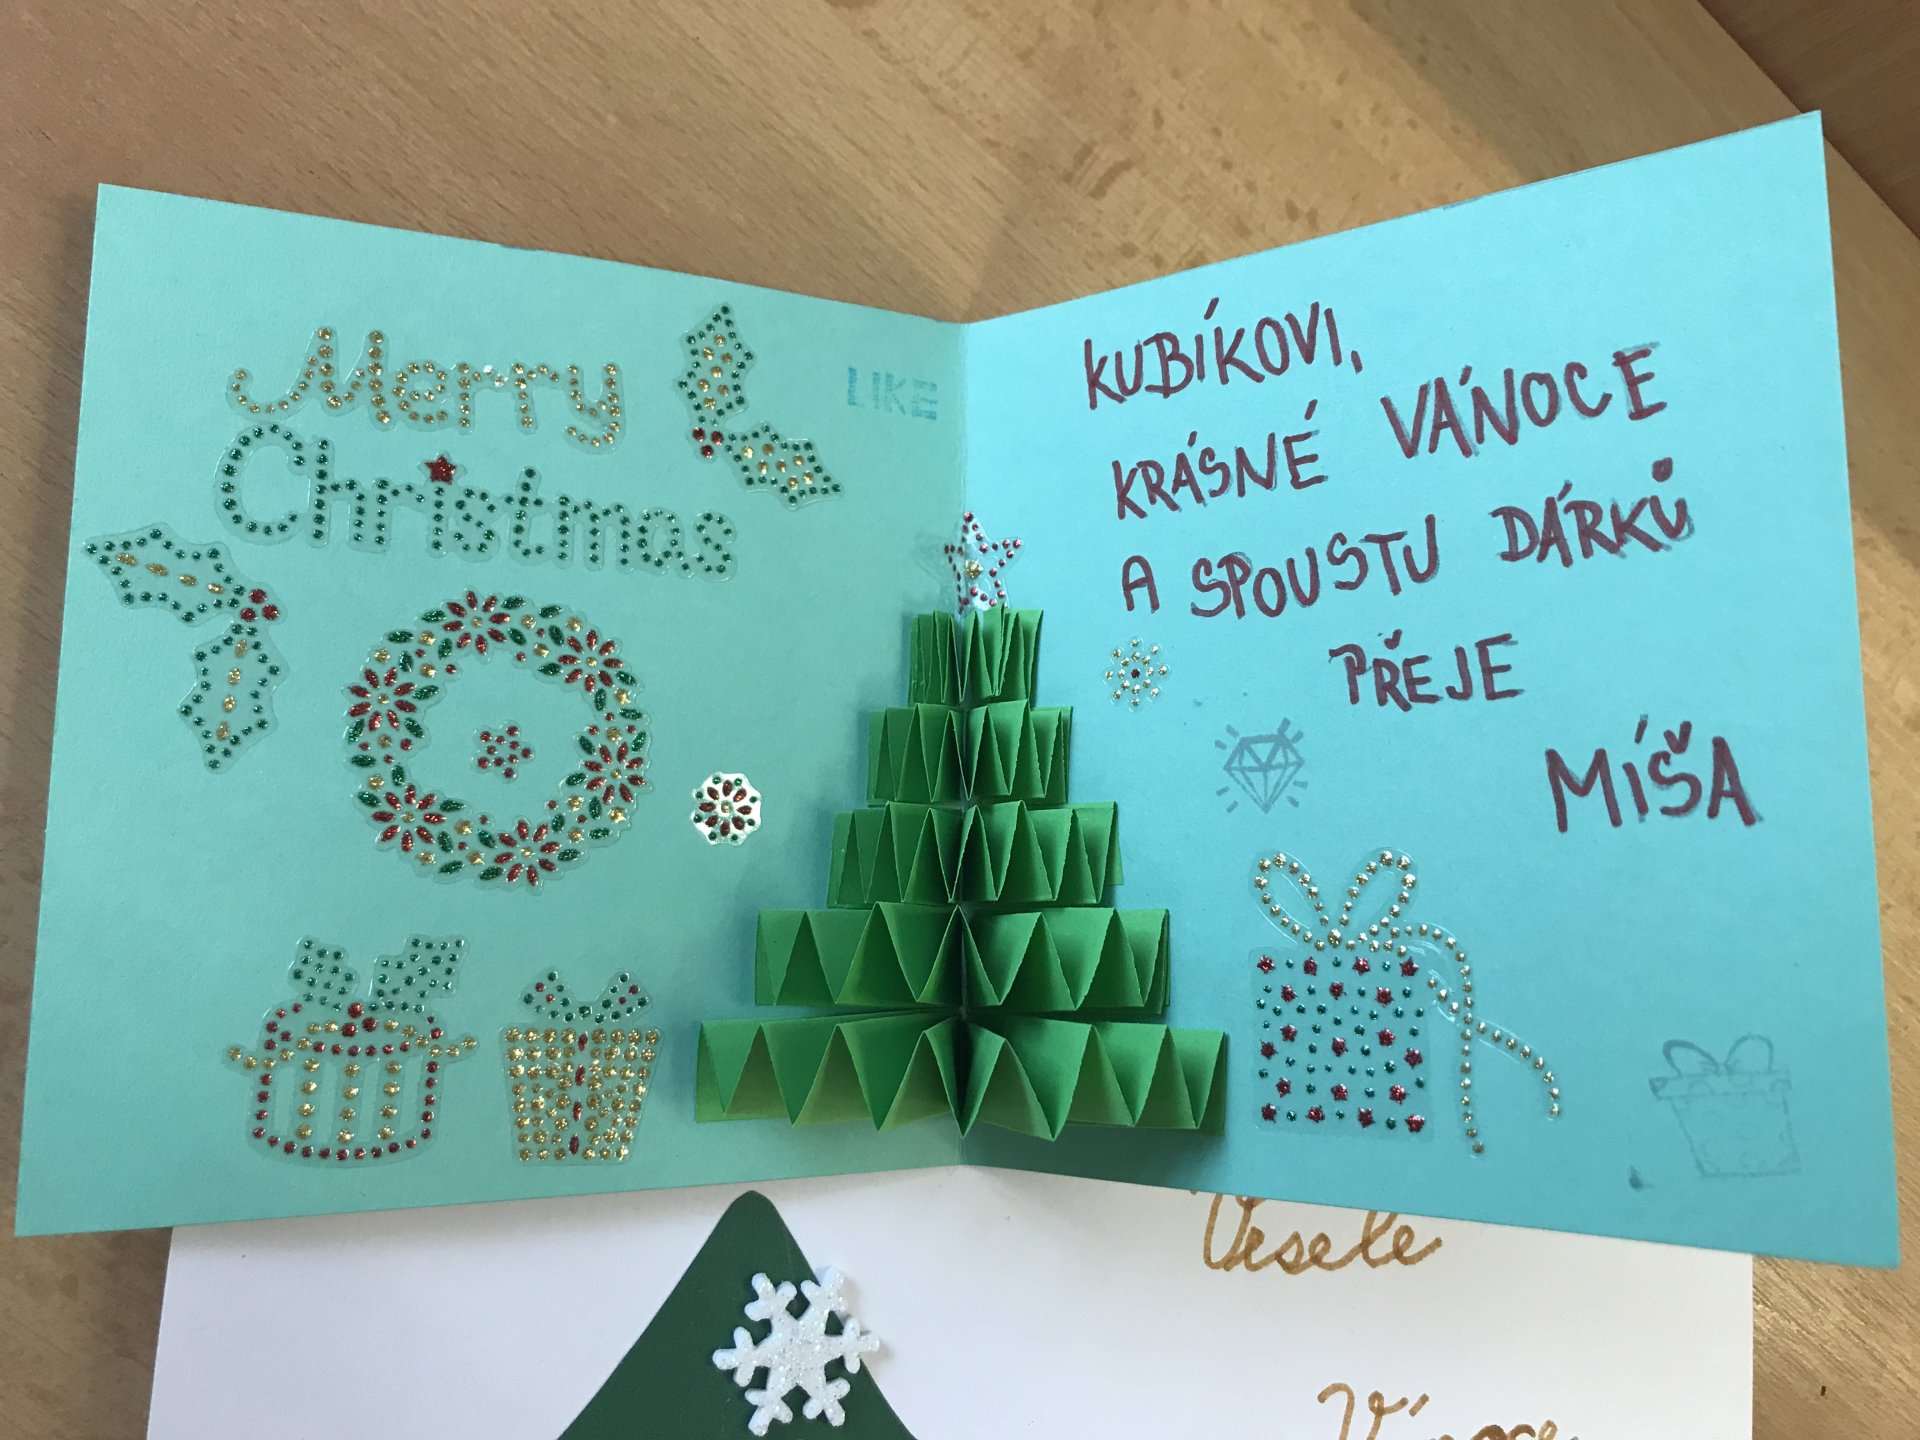 Merry
Christmas
LIKE
KUBÍKOVI,
KRÁSNÉ VÁNOCE
A SPOUSTU DÁRKŮ
PŘEJE
MÍŠA
Veselé
Vánoce